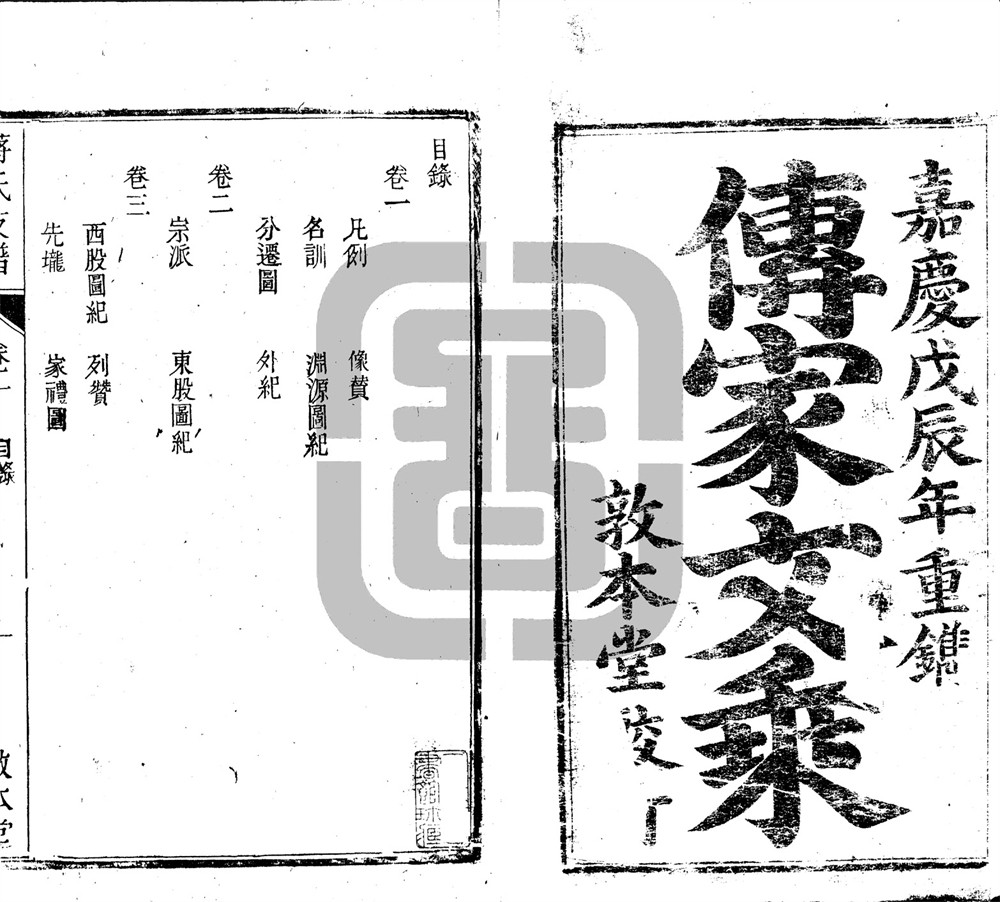 嘉慶戊辰年重鐫
傳家文乘
敦本堂
目錄
卷一
凡例 像賛
名訓 淵源圖紀
分遷圖 外紀
卷二
宗派 東股圖紀
卷三
西股圖紀 列贊
先壠 家禮圖
蔣氏支譜 卷一 目錄 一 敦本堂